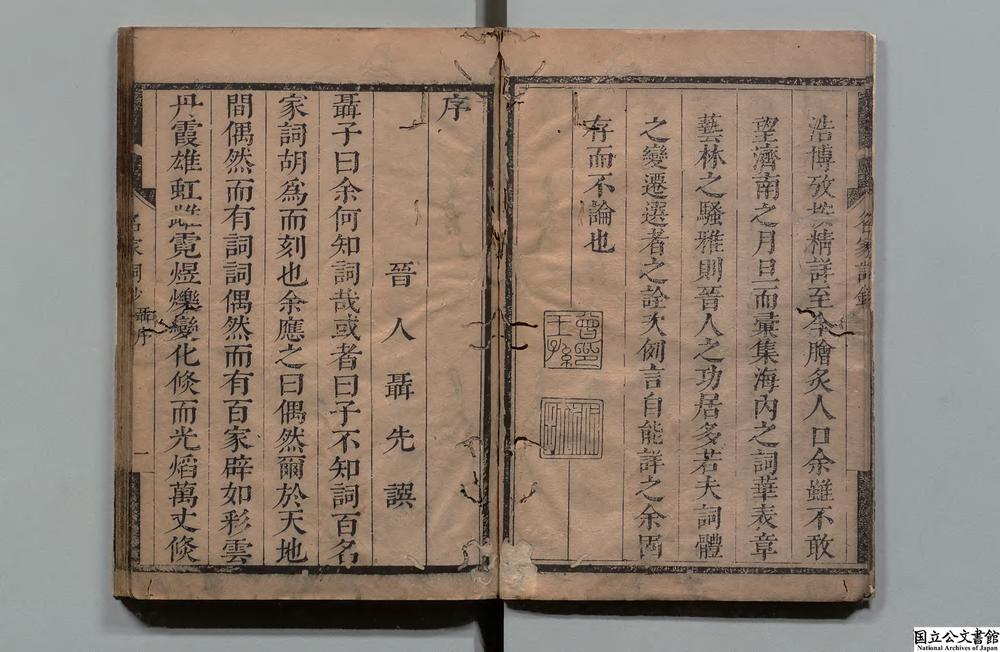 浩博攷據精詳至今膾炙人口余雖不敢
望濟南之月旦而彙集海內之詞華表章
藝林之騷雅則晉人之功居多若夫詞體
之變遷選者之詮次例言自能詳之余固
存而不論也
序
晉人聶先譔
聶子曰余何知詞哉或者曰子不知詞百名
家詞胡為而刻也余應之曰偶然爾於天地
間偶然而有詞詞偶然而有百家辟如彩雲
丹霞雄虹雌霓煜爍變化倐而光焰萬丈倐
名家詞鈔 聶序 一
国立公文書館
National Archives of Japan